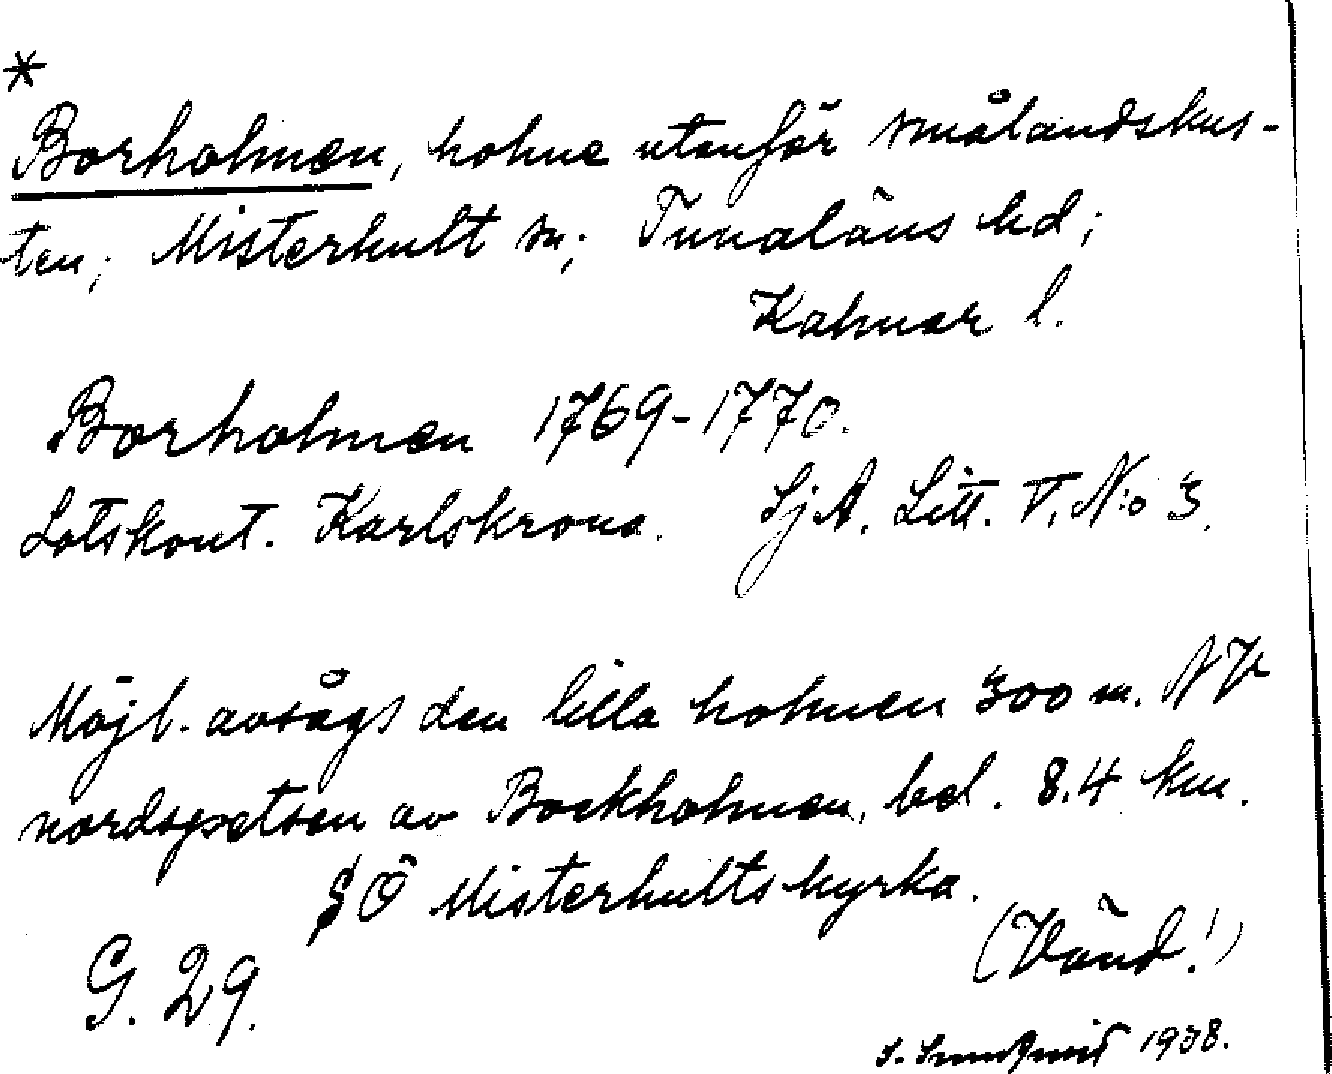 *
Borholmen, holme utanför smålandskus-
ten; Misterhult sn; Tunaläns hd;
Kalmar l.
Borholmen 1769-1770.
Lotskont. Karlskrona. SjA. Litt. V, N:o 3.
Möjl. avsågs den lilla holmen 300 m. NV
nordspetsen av Bockholmen, bel. 8.4 km.
SÖ Misterhults kyrka.
(Vänd!)
G. 29.
1938.